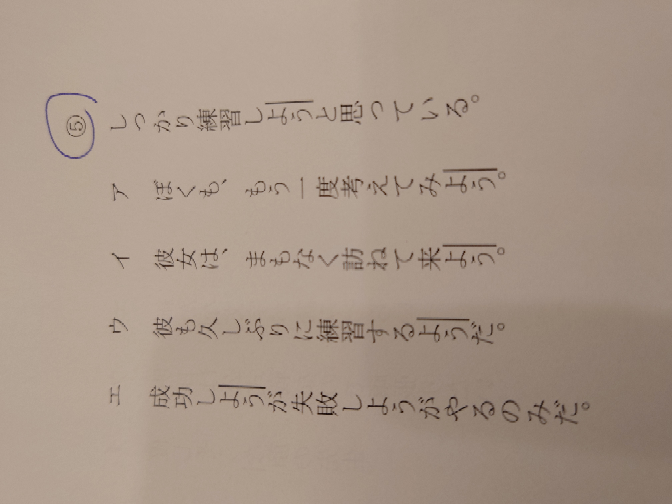 ⑤ しっかり練習しようと思っている。
ア ぼくも、もう一度考えてみよう。
イ 彼女は、まもなく訪ねて来よう。
ウ 彼も久しぶりに練習するようだ。
エ 成功しようが失敗しようがやるのみだ。